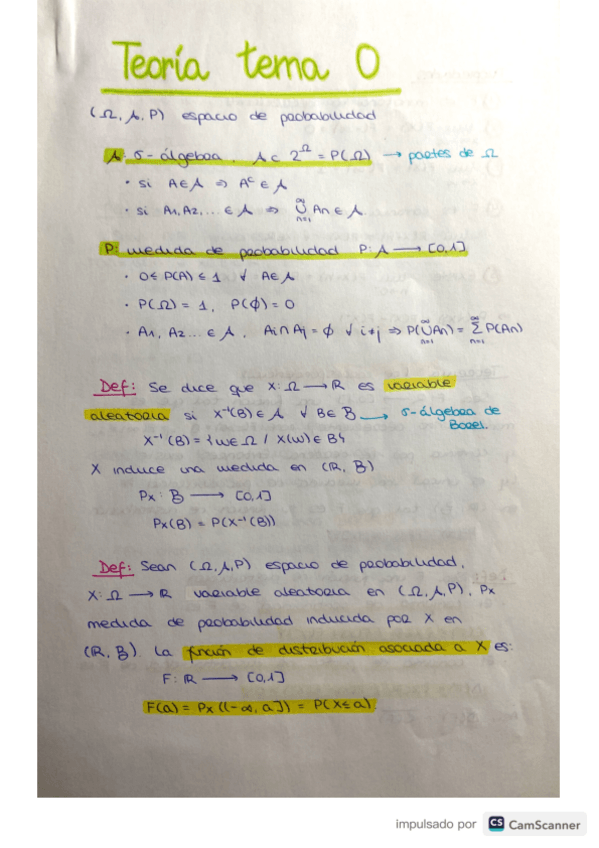 Teoría tema 0
(Ω, A, P) espacio de probabilidad
A: σ-álgebra. A ⊂ 2^Ω = P(Ω) → partes de Ω
· si A ∈ A ⇒ A^c ∈ A
· si A1, A2, ... ∈ A ⇒ ∪_{n=1}^∞ An ∈ A
P: medida de probabilidad P: A → [0,1]
· 0 ≤ P(A) ≤ 1 ∀ A ∈ A
· P(Ω) = 1, P(∅) = 0
· A1, A2... ∈ A, Ai ∩ Aj = ∅ ∀ i≠j ⇒ P(∪_{n=1}^∞ An) = Σ_{n=1}^∞ P(An)
Def: Se dice que X: Ω → ℝ es variable
aleatoria si X⁻¹(B) ∈ A ∀ B ∈ B → σ-álgebra de
Borel.
X⁻¹(B) = {w ∈ Ω / X(w) ∈ B}
X induce una medida en (ℝ, B)
Px: B → [0,1]
Px(B) = P(X⁻¹(B))
Def: Sean (Ω, A, P) espacio de probabilidad,
X: Ω → ℝ variable aleatoria en (Ω, A, P), Px
medida de probabilidad inducida por X en
(ℝ, B). La función de distribución asociada a X es:
F: ℝ → [0,1]
F(a) = Px((-∞, a]) = P(X ≤ a).
impulsado por CS CamScanner